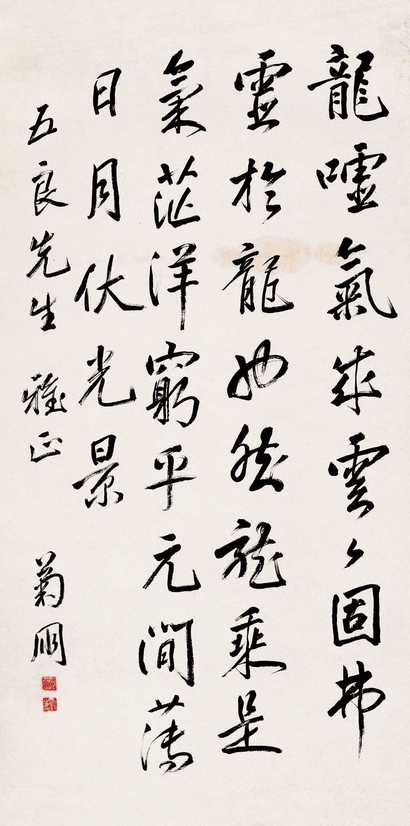 龍噓氣成雲々固弗
靈於龍也然龍乘是
氣茫洋窮乎元間薄
日月伏光景
五良先生 雅正
菊朋